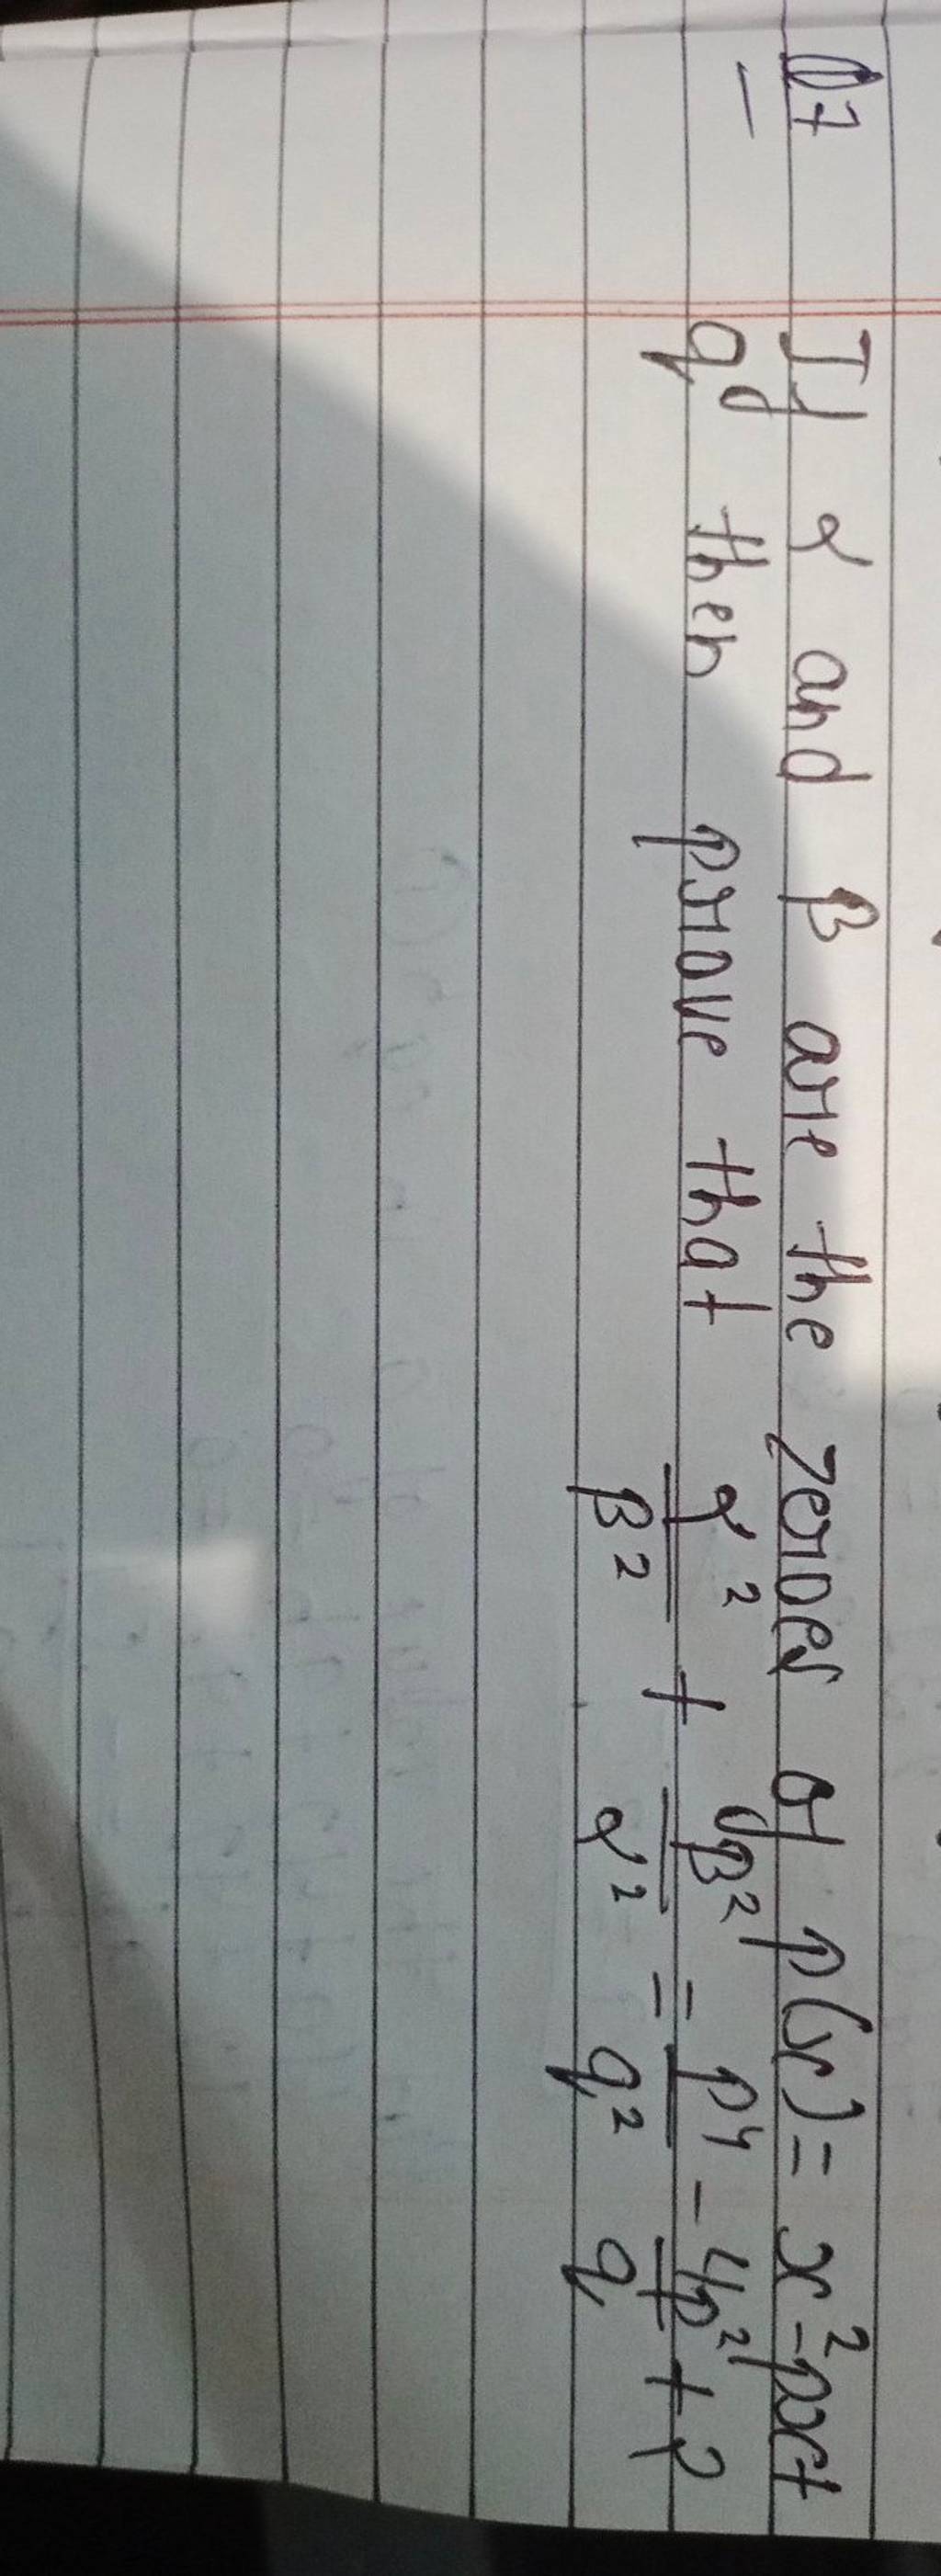 Q7 If α and β are the zeroes of p(x) = x² - px +
q, then prove that α²/β² + β²/α² = p⁴/q² - 4p²/q + 2